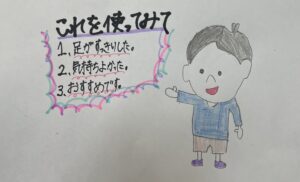 これを使ってみて
1、足がすっきりした。
2、気持ちよかった。
3、おすすめです。